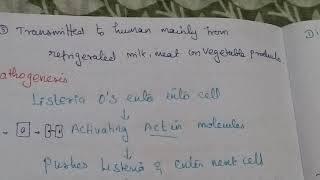 ③ Transmitted to human mainly from
refrigerated milk, meat (or) vegetable products.
athogenesis
Listeria O's ento into cell
↓
Activating Actin molecules
↓
Pushes Listeria & enter next cell
Di